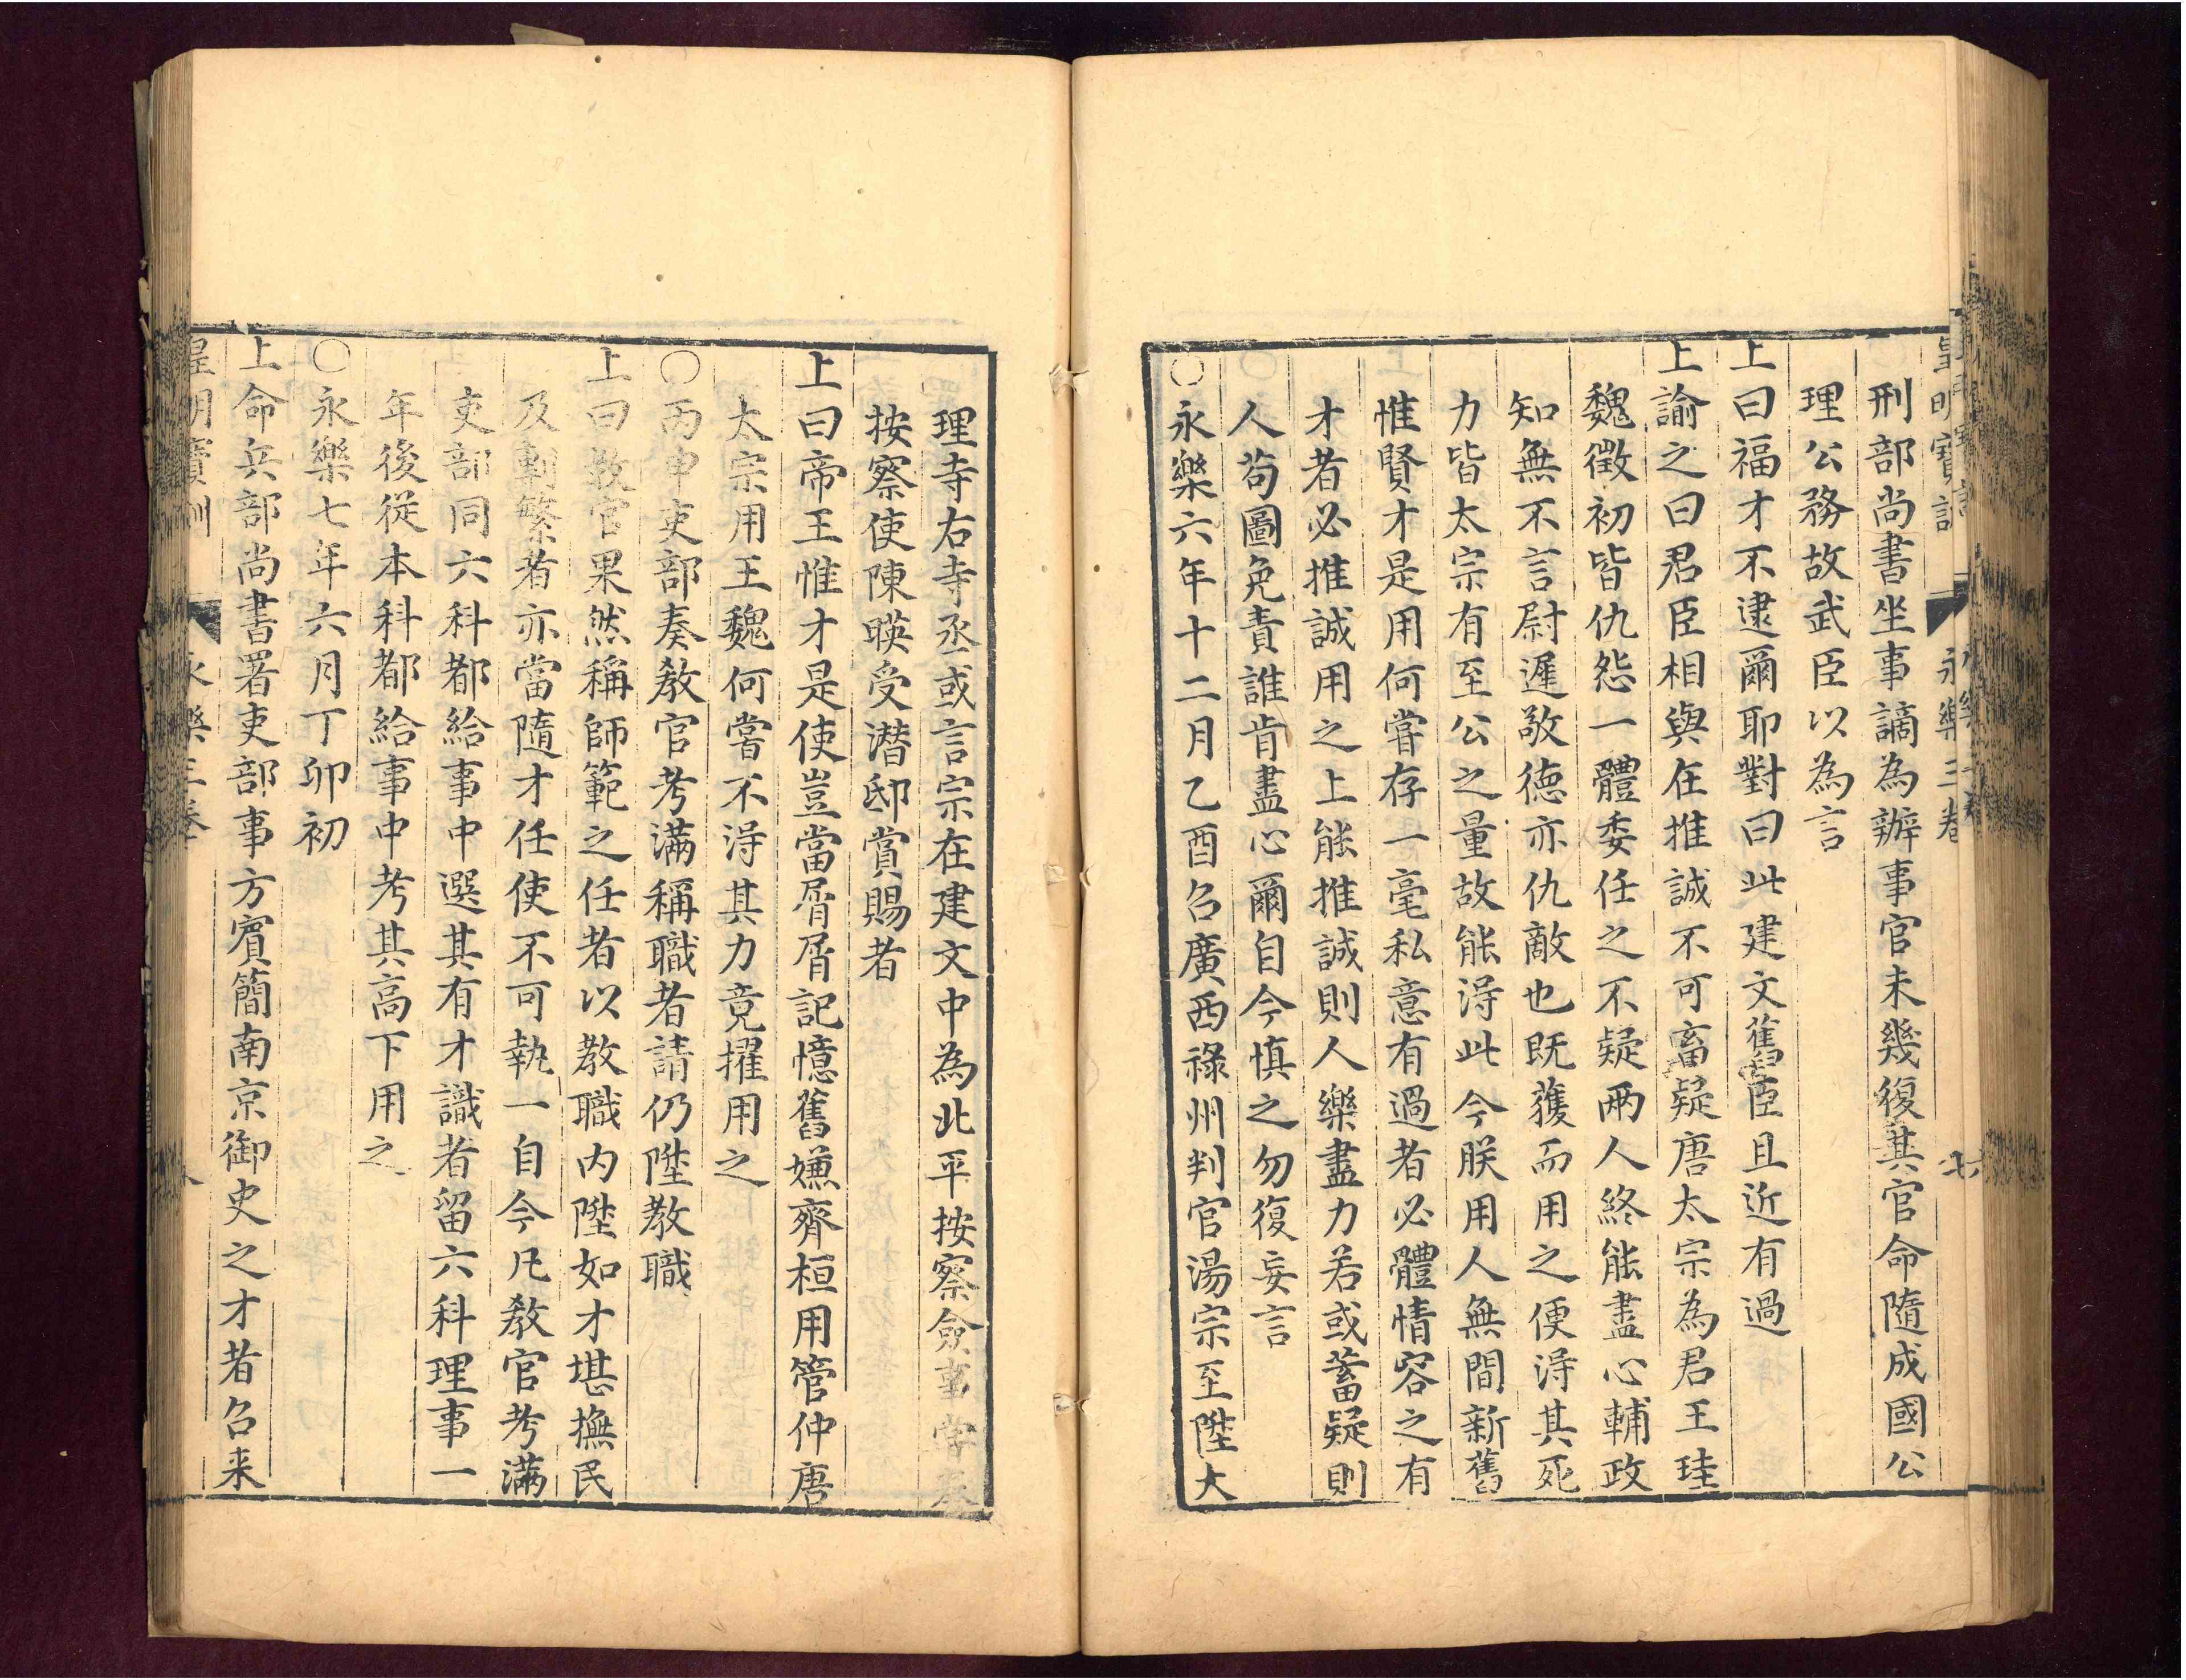 皇明寶訓 永樂三卷 七
刑部尚書坐事謫為辦事官未幾復其官命隨成國公
理公務故武臣以為言
上曰福才不逮爾耶對曰此建文舊臣且近有過
上諭之曰君臣相與在推誠不可畜疑唐太宗為君王珪
魏徵初皆仇怨一體委任之不疑兩人終能盡心輔政
知無不言尉遲敬德亦仇敵也既獲而用之便淂其死
力皆太宗有至公之量故能淂此今朕用人無間新舊
惟賢才是用何嘗存一毫私意有過者必體情容之有
才者必推誠用之上能推誠則人樂盡力若或蓄疑則
人苟圖免責誰肯盡心爾自今慎之勿復妄言
○永樂六年十二月乙酉召廣西祿州判官湯宗至陞大
理寺右寺丞或言宗在建文中為北平按察僉事嘗奏
按察使陳暎受潛邸賞賜者
上曰帝王惟才是使豈當屑屑記憶舊嫌齊桓用管仲唐
太宗用王魏何嘗不淂其力竟擢用之
○丙申吏部奏教官考滿稱職者請仍陞教職
上曰教官果然稱師範之任者以教職內陞如才堪撫民
及剸繁者亦當隨才任使不可執一自今凡教官考滿
吏部同六科都給事中選其有才識者留六科理事一
年後從本科都給事中考其高下用之
○永樂七年六月丁卯初
上命兵部尚書署吏部事方賓簡南京御史之才者召来
皇明寶訓 永樂三卷 八